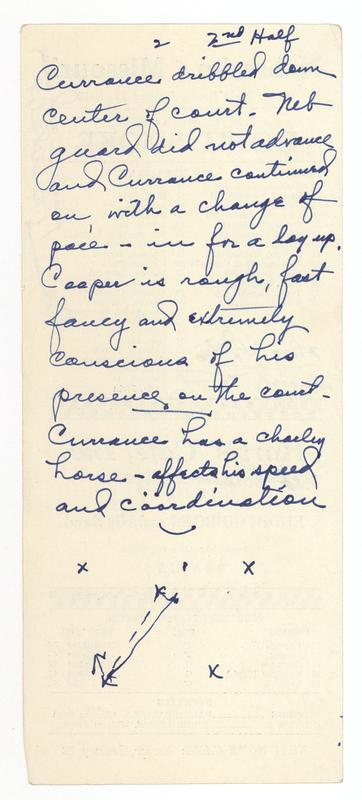 2 2nd Half
Currance dribbled down
center of court. Neb
guard did not advance
and Currance continued
on with a change of
pace - in for a lay up.
Cooper is rough, fast
fancy and extremely
conscious of his
presence on the court -
Currance has a charley
horse - affects his speed
and coordination
x x
x
x